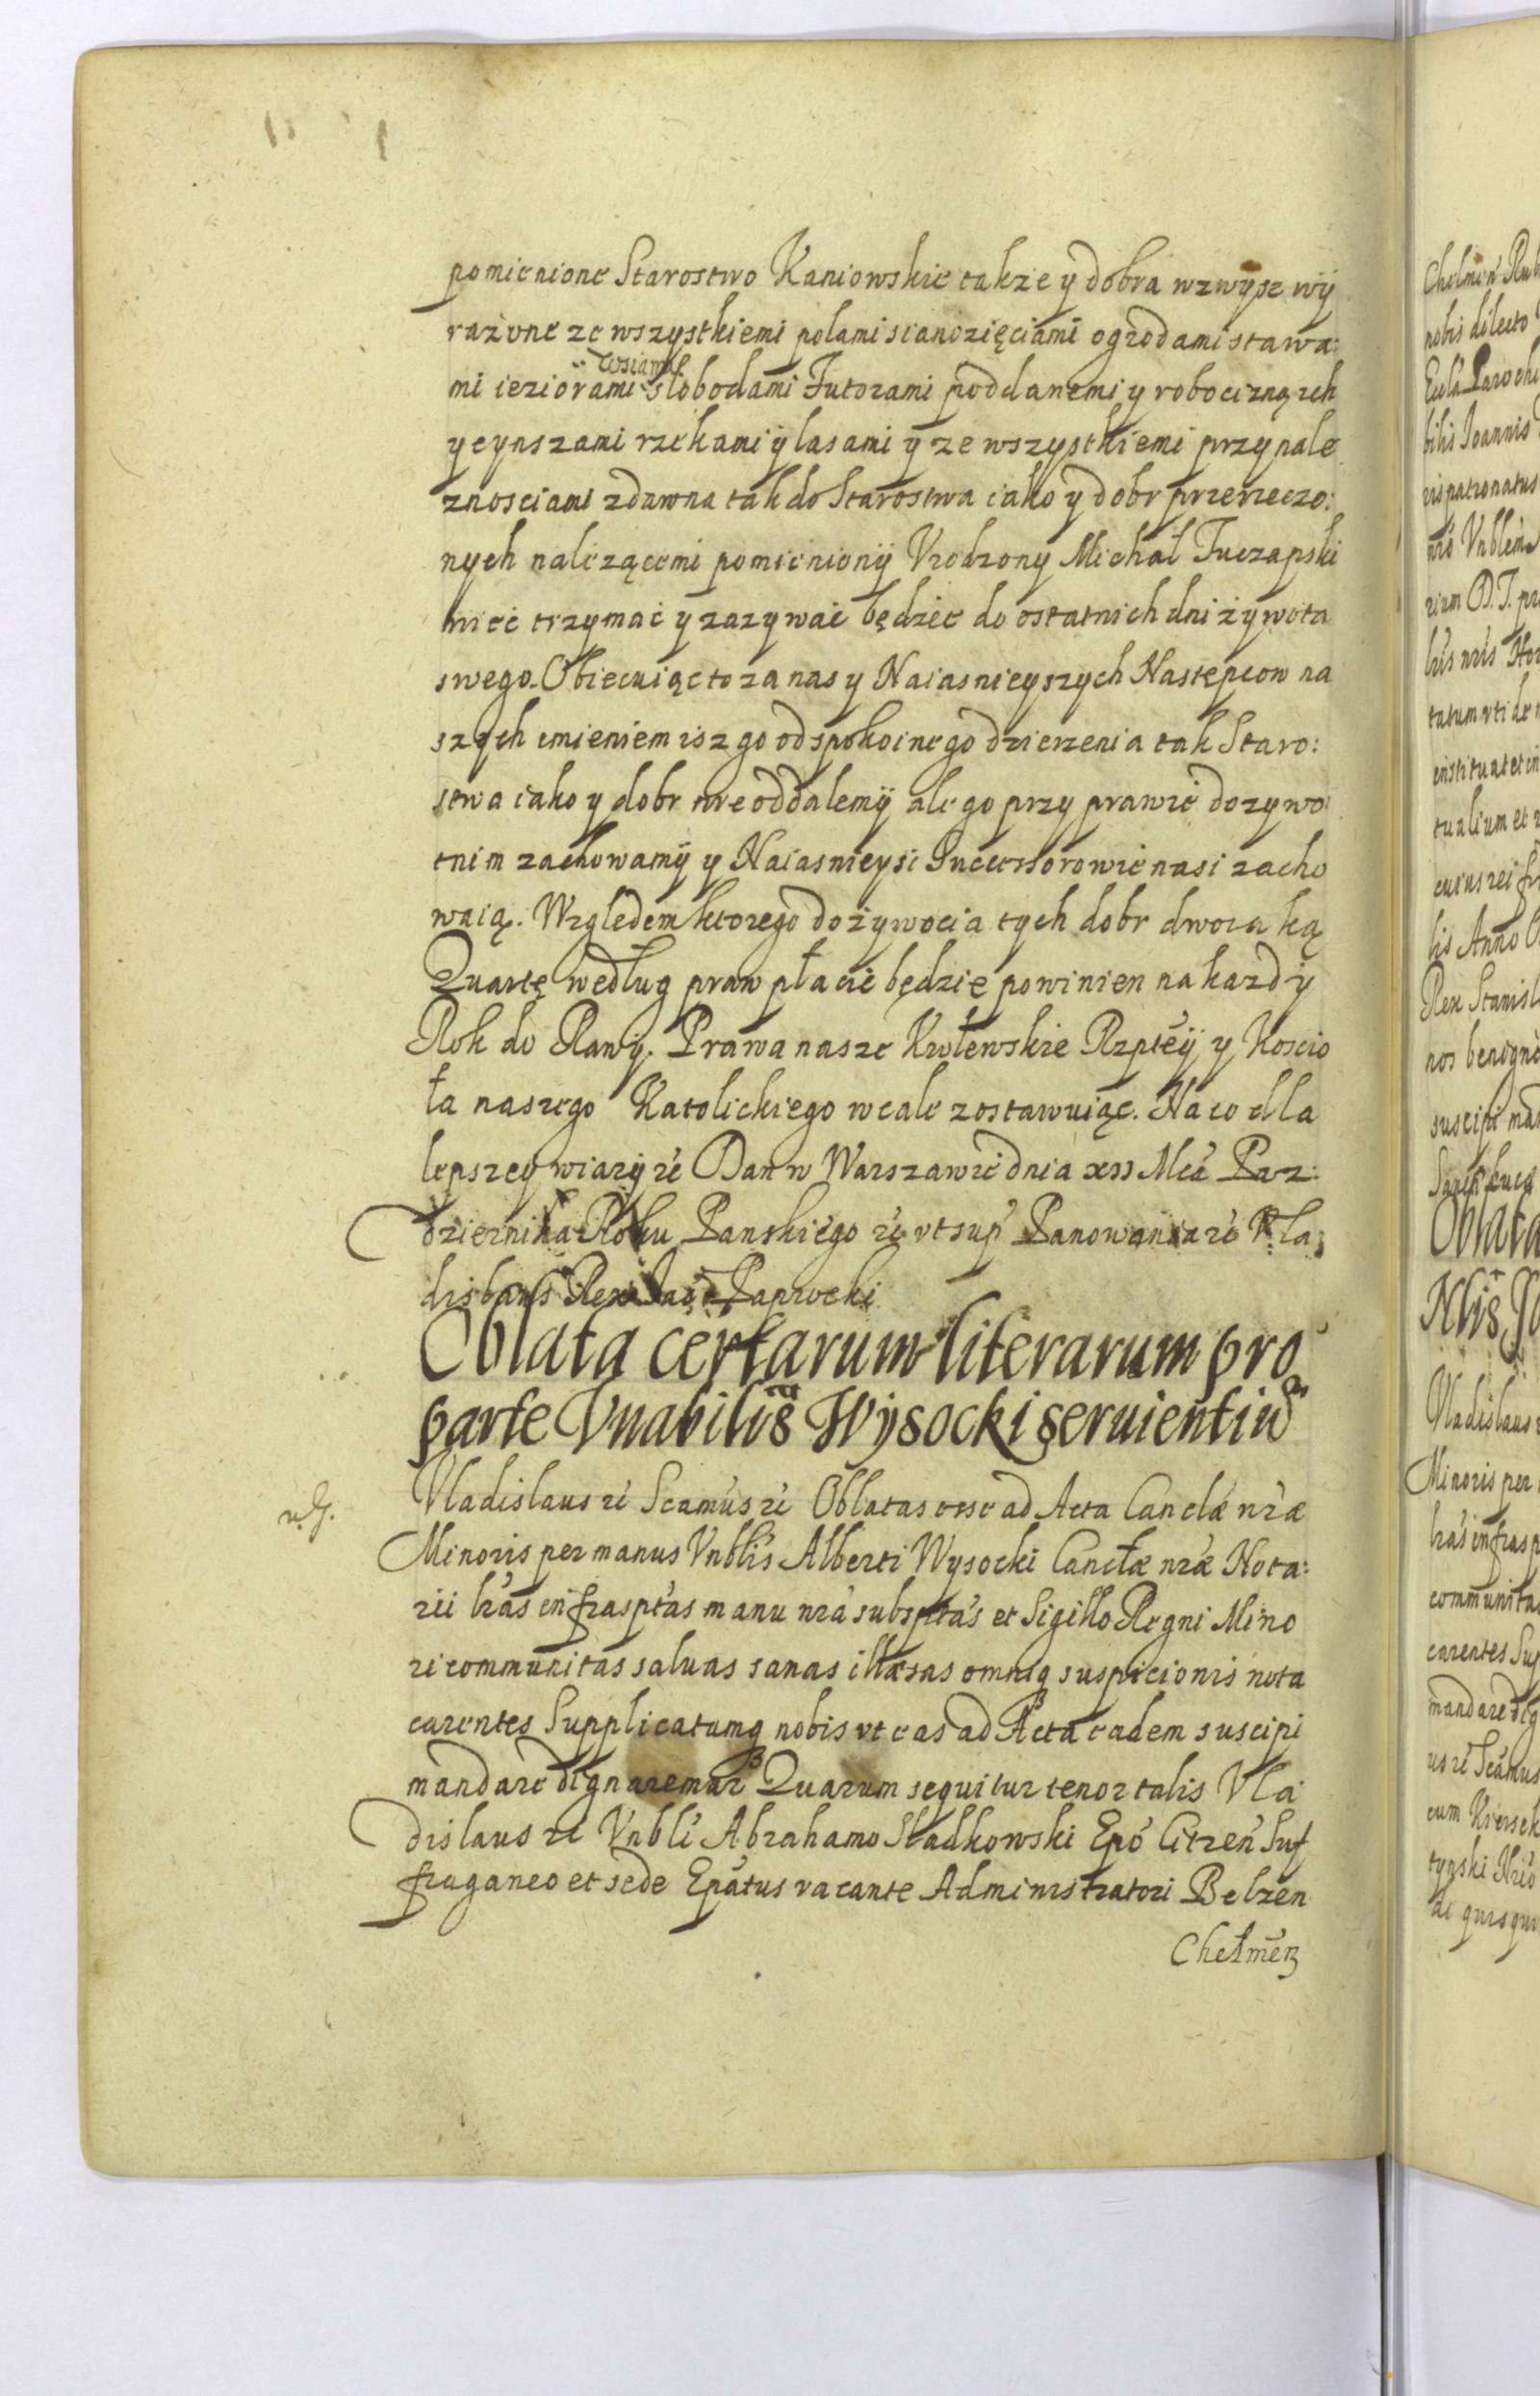 pomienione Starostwo Kaniowskie takze y dobra wzwysz wÿ
rażone ze wszystkiemi polami sianozięciami ogrodami stawa:
wsiami
mi ieziorami slobodami Futorami poddanemi y robocizną ich
y cynszami rzekami ÿ lasami ÿ ze wszystkiemi przynale
znosciami zdawna tak do Starostwa iako y dobr przerzeczo:
nych należącemi pomienionÿ Vrodzony Michał Tuczapski
mieć trzymać y zazywać będzie do ostatnich dni żywota
swego. Obiecuiąc to za nas y Naiasnieyszych Nastepcow na
szych imieniem isz go od spokoinego dzierzenia tak Staro:
stwa iako y dobr nie oddalemÿ ale go przy prawie dozywo:
tnim zachowamÿ y Naiasnieysi Successorowie nasi zacho
waią. Względem ktorego dożywocia tych dobr dwoiaką
Quartę według praw płacić będzie powinien na kazdÿ
Rok do Rawÿ. Prawa nasze Krolewskie Rzptéÿ y Koscio
ła naszego Katolickiego wcale zostawuiąc. Na co dla
lepszey wiarÿ ić Dan w Warszawie dnia xɪɪ Mcá Paz:
dziernika Roku Panskiégo ić vt sup Panowania ić Vla:
dislaus Rex Paprocki
Oblata certarum literarum pro
parte Vnabilis Wÿsocki seruientiũ
Vladislaus ić Scamús ić Oblatas esse ad Acta Canclæ nræ
Minoris per manus Vnblis Alberti Wysocki Canclæ nræ Nota:
rii lrás infrasptás manu nrá subsptás et Sigillo Regni Mino
ri communitas saluas sanas illæsas omniq suspicionis nota
carentes Supplicatumq nobis vt eas ad Acta eadem suscipi
mandare dignaremur Quarum sequitur tenor talis Vla
dislaus ić Vnbli Abrahamo Sladkowski Epó Citren Suf
fraganeo et sede Epátus vacante Administratori Belzen
Chełmen
Chelmen
nobis dilecto
bilis Ioannis
ris patronatus
tatum vti de
instituat et in
tualium et
lis Anno
Rex Stanisl
nos benigne
suscipi man
Oblata
Vladislaus
Minoris per
lras infrasp
communita
carentes Sup
mandare dig
us ić Scamus